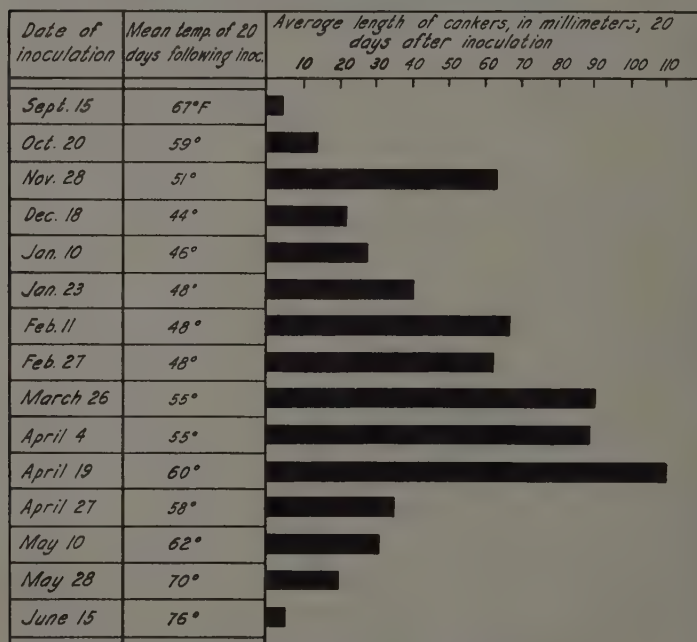 Date of inoculation
Mean temp. of 20 days following inoc.
Average length of cankers, in millimeters, 20 days after inoculation
10 20 30 40 50 60 70 80 90 100 110
Sept. 15 67°F
Oct. 20 59°
Nov. 28 51°
Dec. 18 44°
Jan. 10 46°
Jan. 23 48°
Feb. 11 48°
Feb. 27 48°
March 26 55°
April 4 55°
April 19 60°
April 27 58°
May 10 62°
May 28 70°
June 15 76°